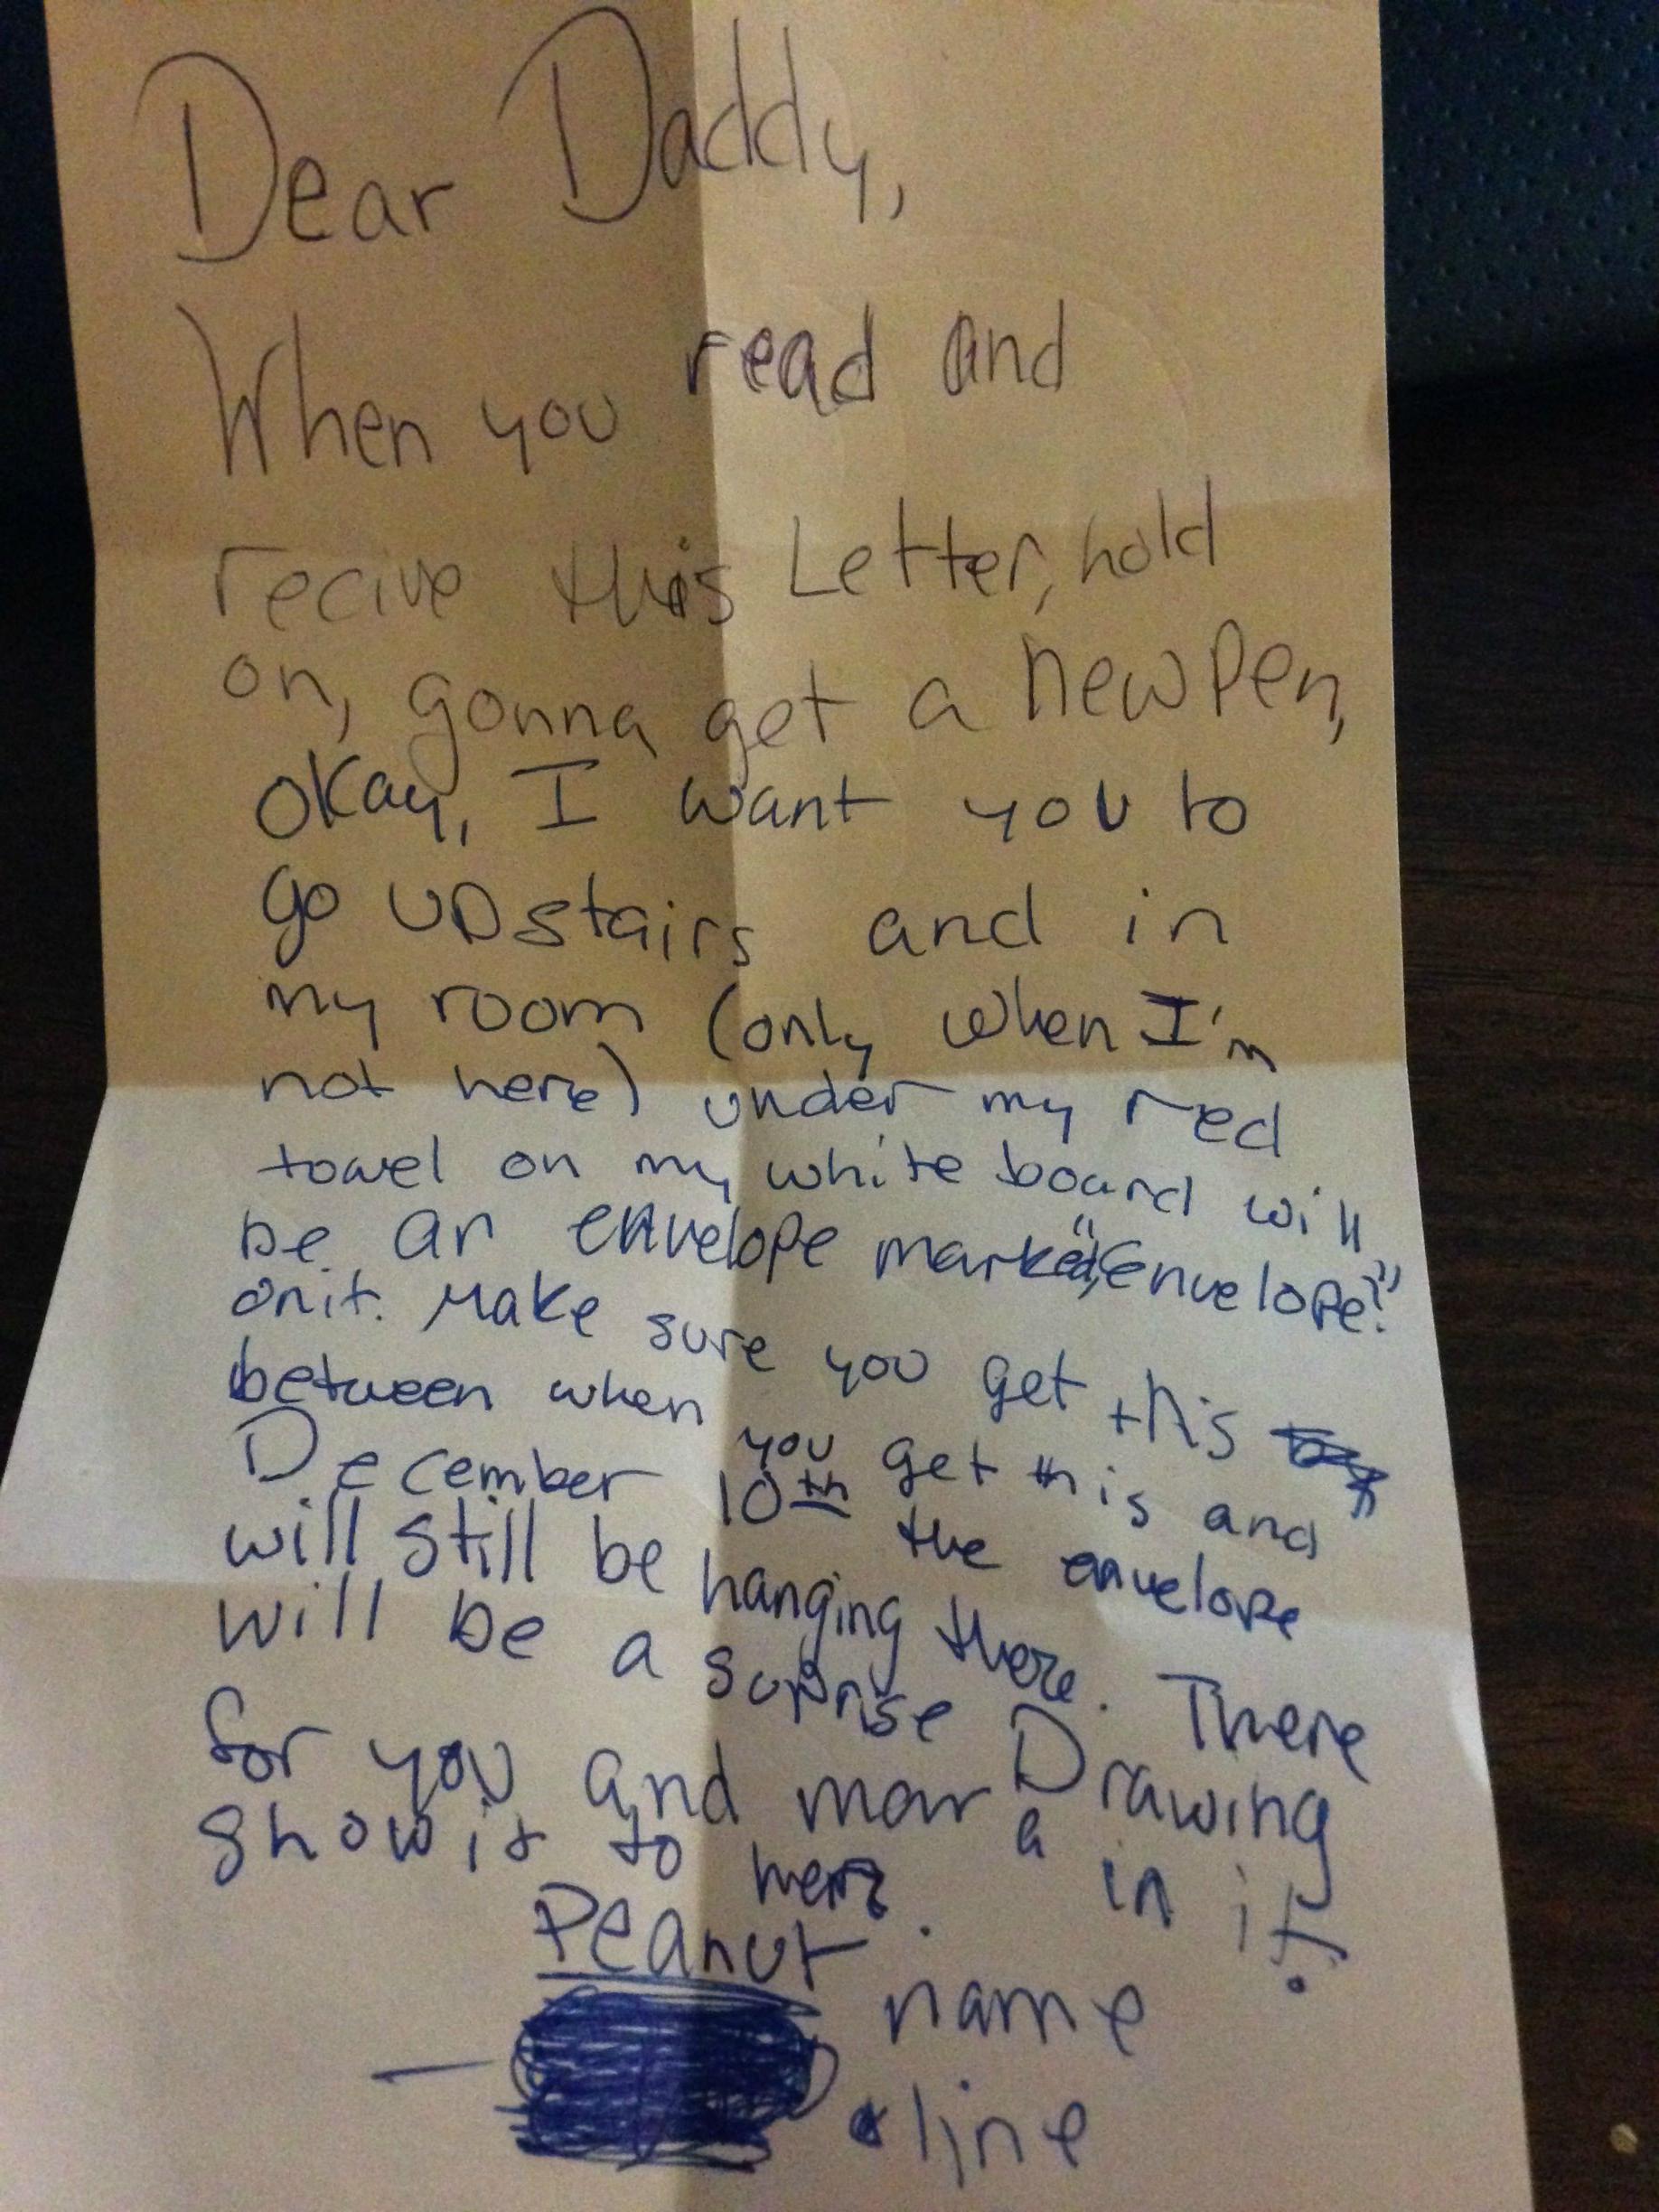 Dear Daddy,
When you read and
recive this Letter, hold
on, gonna get a new Pen,
okay, I want you to
go upstairs and in
my room (only when I'm
not here) under my red
towel on my white board will
be an envelope marked, "envelope"
on it. Make sure you get this
between when you get this and
December 10th the envelope
will still be hanging there. There
will be a suprise Drawing
for you and mom a in it.
Show it to here.
Peanut
name
line